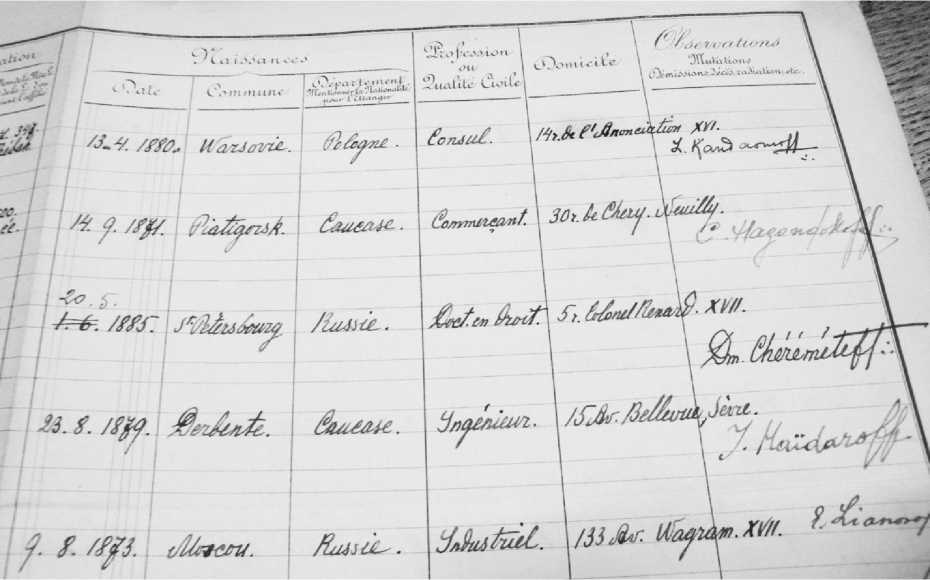 Naissances
Profession
ou
Qualité Civile
Domicile
Observations
Mutations
Démissions, Décès, radiation, etc.
Date
Commune
Département
Mentionner la Nationalité
pour l'Etranger
13-4. 1880. Warsovie. Pologne. Consul. 14 r. de l'Anonciation XVI.
Z. Kandaouroff
14. 9. 1871. Piatigorsk. Caucase. Commerçant. 30 r. de Chery. Neuilly.
C. Hagondokoff
20. 5.
1. 6. 1885. St Pétersbourg Russie. Doct. en Droit. 5 r. Colonel Renard. XVII.
Dm. Chéréméteff
23. 8. 1879. Derbente. Caucase. Ingénieur. 15 Av. Bellevue, Sèvre.
J. Haïdaroff
9. 8. 1873. Moscou. Russie. Industriel. 133 Av. Wagram. XVII. E. Lianosoff